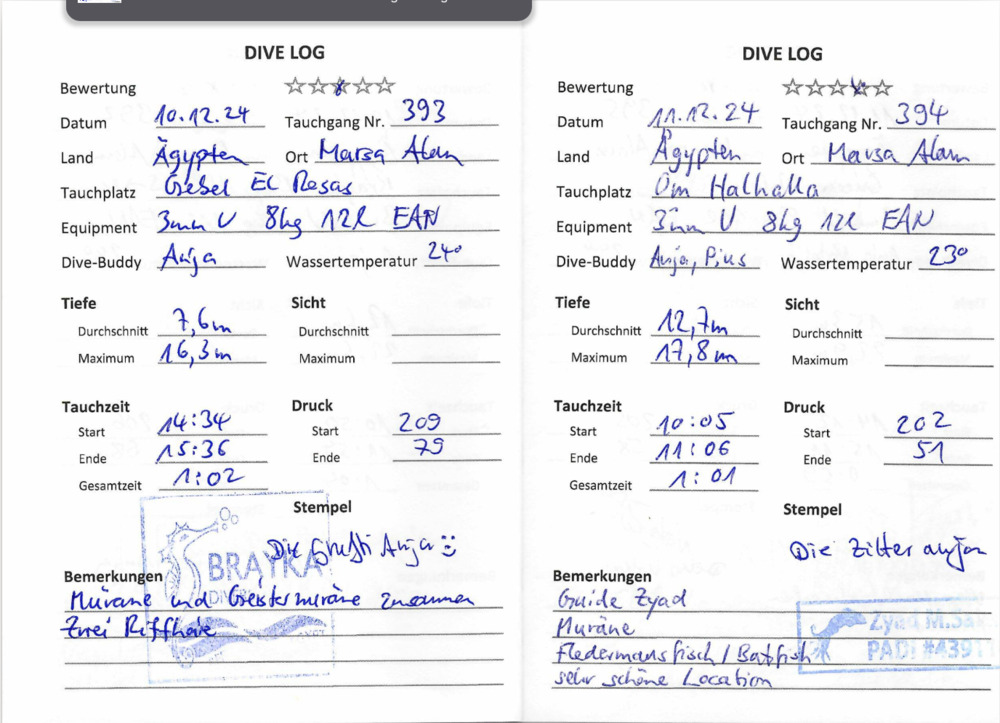 DIVE LOG
Bewertung
Datum 10.12.24 Tauchgang Nr. 393
Land Ägypten Ort Marsa Alam
Tauchplatz Gebel El Rosas
Equipment 3mm U 8kg 12l EAN
Dive-Buddy Anja Wassertemperatur 24°
Tiefe Sicht
Durchschnitt 7,6m Durchschnitt
Maximum 16,3m Maximum
Tauchzeit Druck
Start 14:34 Start 209
Ende 15:36 Ende 79
Gesamtzeit 1:02
Stempel
Die Anja
BRAYKA
Bemerkungen
Muräne und Geistermuräne zusammen
Zwei Riffhaie
DIVE LOG
Bewertung
Datum 11.12.24 Tauchgang Nr. 394
Land Ägypten Ort Marsa Alam
Tauchplatz Om Halhalla
Equipment 3mm U 8kg 12l EAN
Dive-Buddy Anja, Pius Wassertemperatur 23°
Tiefe Sicht
Durchschnitt 12,7m Durchschnitt
Maximum 17,8m Maximum
Tauchzeit Druck
Start 10:05 Start 202
Ende 11:06 Ende 51
Gesamtzeit 1:01
Stempel
Die Zitter
Bemerkungen
Guide Zyad
Muräne
Fledermausfisch / Batfish
sehr schöne Location
Zyad M.
PADI #4391